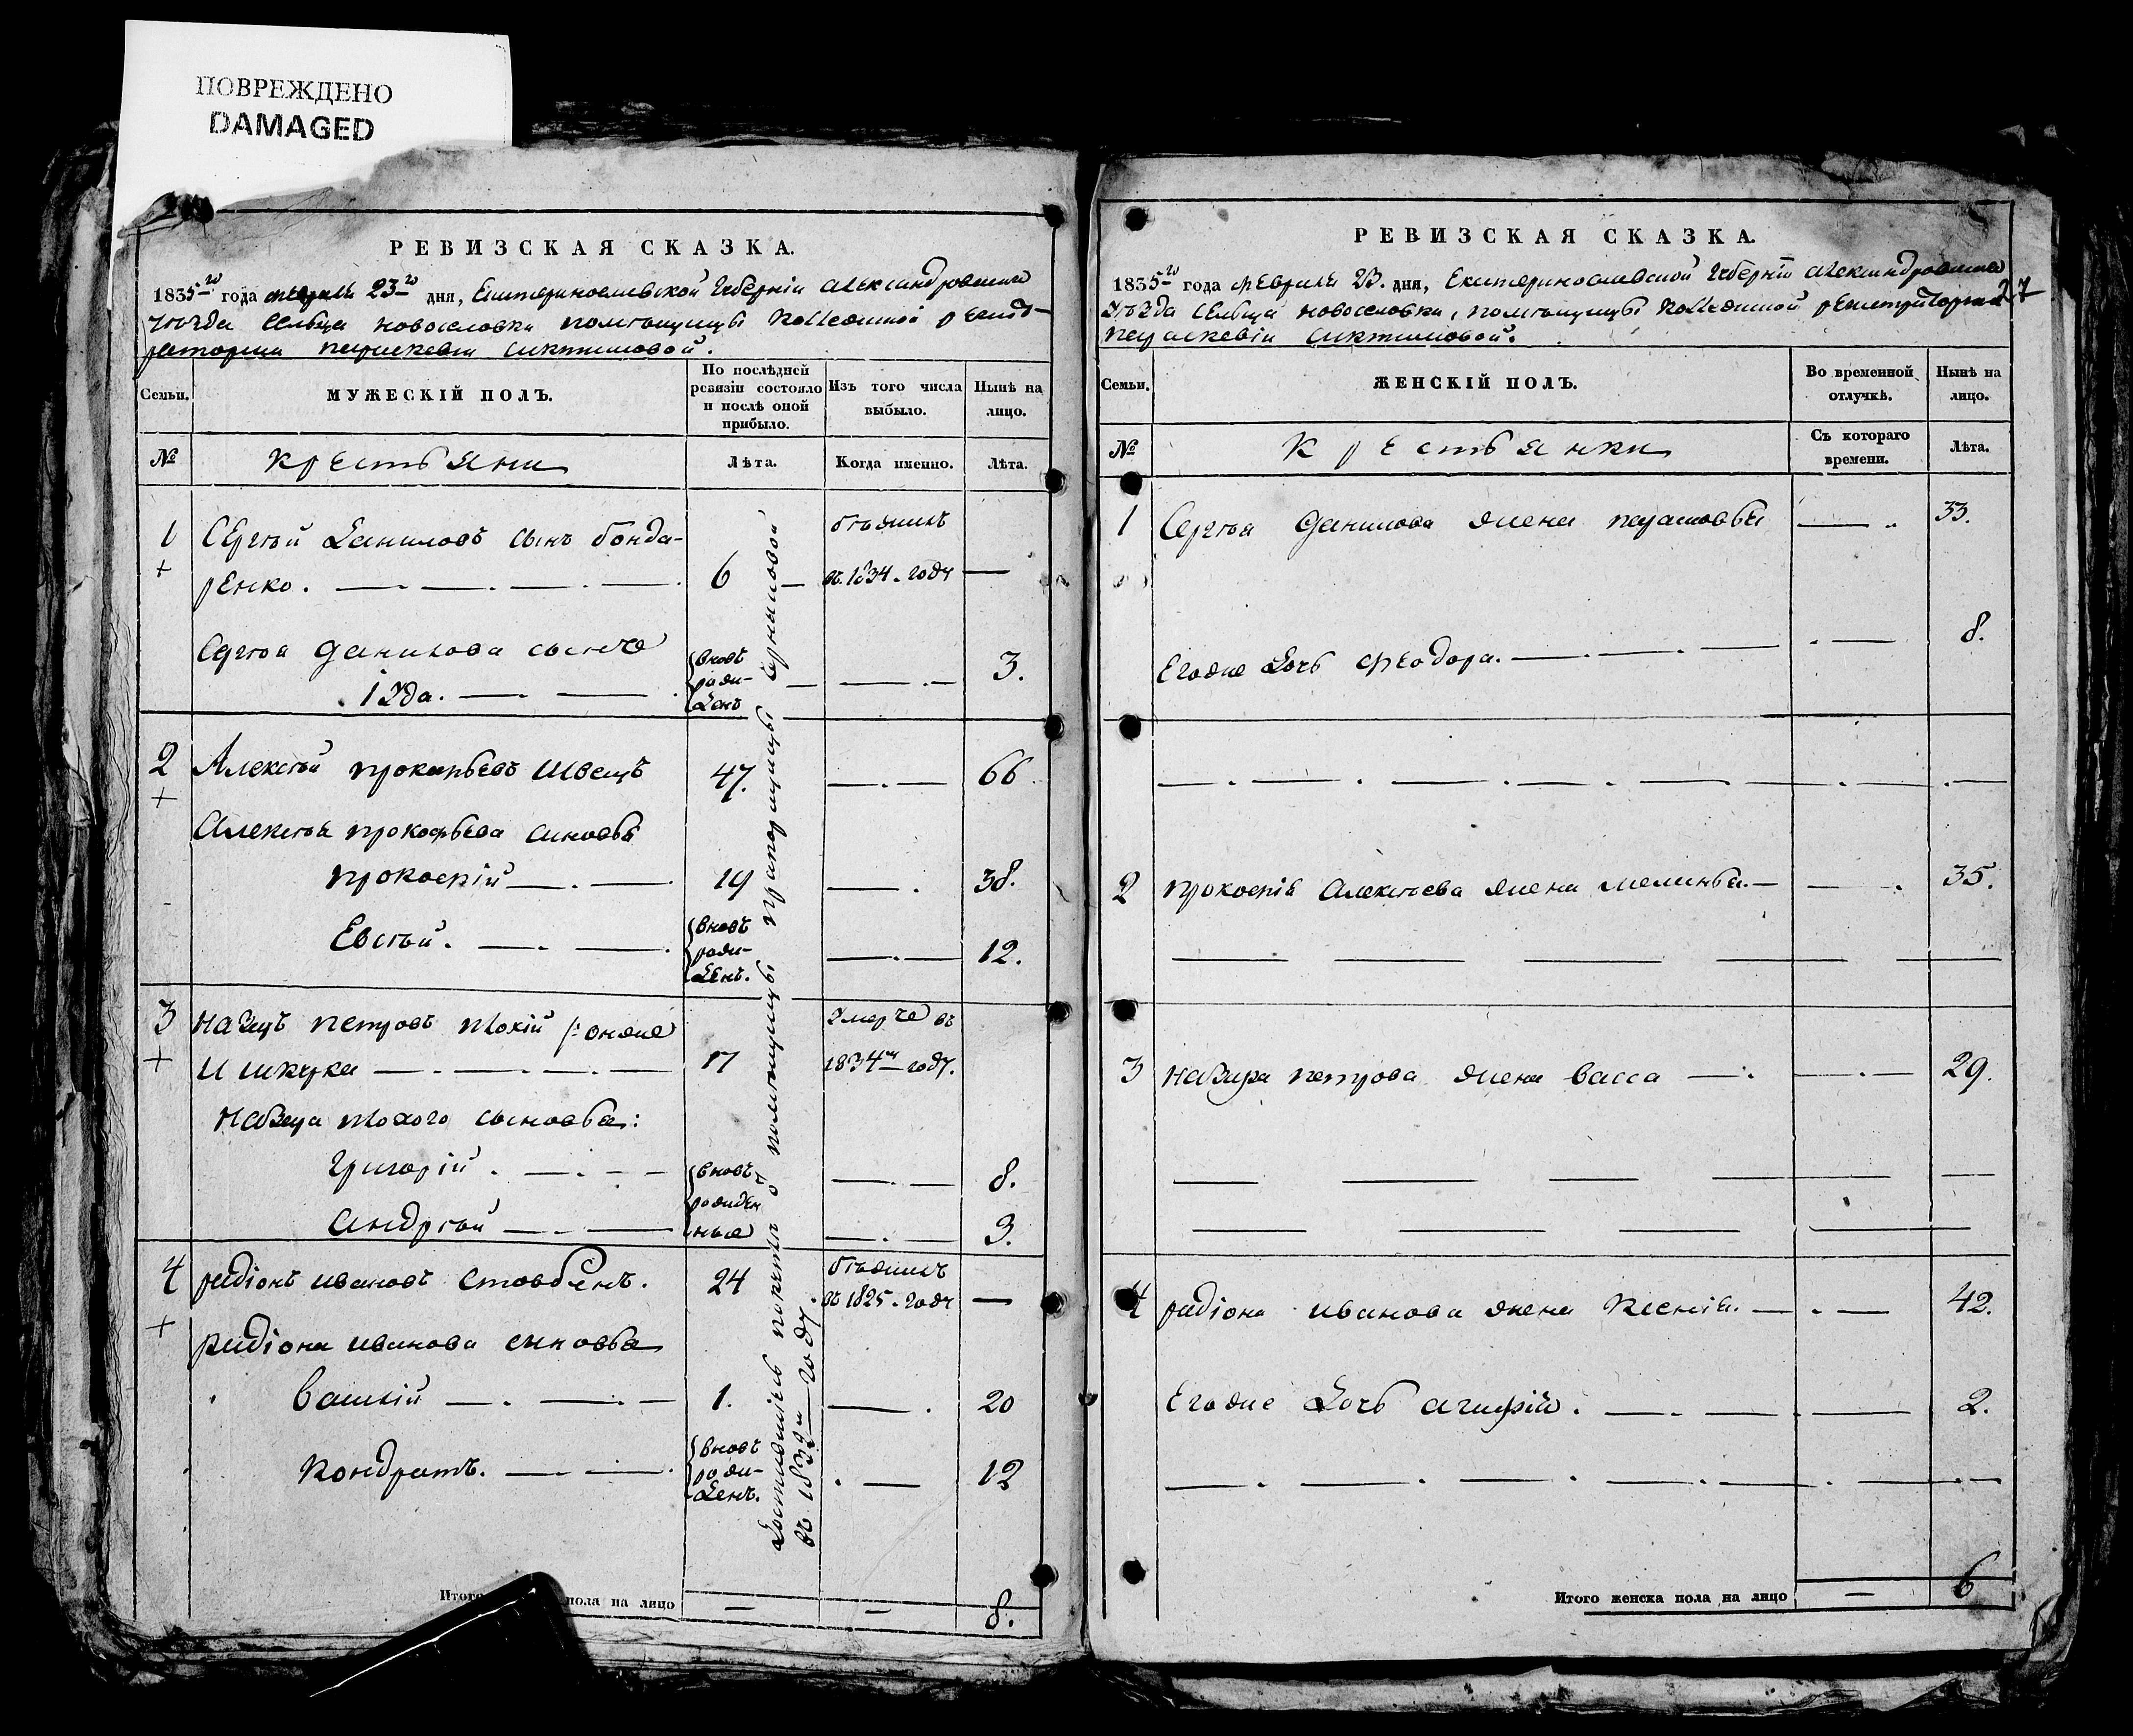 ПОВРЕЖДЕНО
DAMAGED
РЕВИЗСКАЯ СКАЗКА.
1835го года февраля 23го дня, Екатеринославской Губерніи Александровскаго
уѣзда сельца новоселовки помѣщицы Коллежской регист-
раторши
Семьи.
МУЖЕСКІЙ ПОЛЪ.
По послѣдней ревизіи состояло и послѣ оной прибыло.
Изъ того числа выбыло.
Нынѣ на лицо.
№
крестьяни
Лѣта.
Когда именно.
Лѣта.
1 Сергѣй Даниловъ сынъ бонда-
ренко. 6 въ 1834. году
Сергѣя Данилова сынъ
вновь рожденъ 3.
2 Алексѣй прокопьевъ Швецъ 47. 66
Алексѣя прокофьева сыновья
прокопій 19 38.
Евсѣй. вновь рожденъ. 12.
3 петровъ плохій онже
и шкурка 17 умре въ 1834м году.
плохого сыновья:
григорій. вновь рожден 8.
андрѣй ные 3.
4 радіонъ ивановъ стовбенъ. 24 въ 1825. году
радіона иванова сыновья
василій 1. 20
кондратъ. вновь рожденъ. 12
помѣщицы прапорщицы
въ 1832м году
Итого пола на лицо 8.
РЕВИЗСКАЯ СКАЗКА.
27
1835го года февраля 23. дня, Екатеринославской Губерніи александровскаго
уѣзда сельца новоселовки, помѣщицы Коллежской регистраторши
Семьи.
ЖЕНСКІЙ ПОЛЪ.
Во временной отлучкѣ.
Нынѣ на лицо.
№
крестьянки
Съ котораго времени.
Лѣта.
1 Сергѣя Данилова жена 33.
Егоже дочь феодора. 8.
2 прокопія алексѣева жена 35.
3 петрова жена васса 29.
4 радіона иванова жена ксенія. 42.
Егоже дочь 2.
Итого женска пола на лицо 6